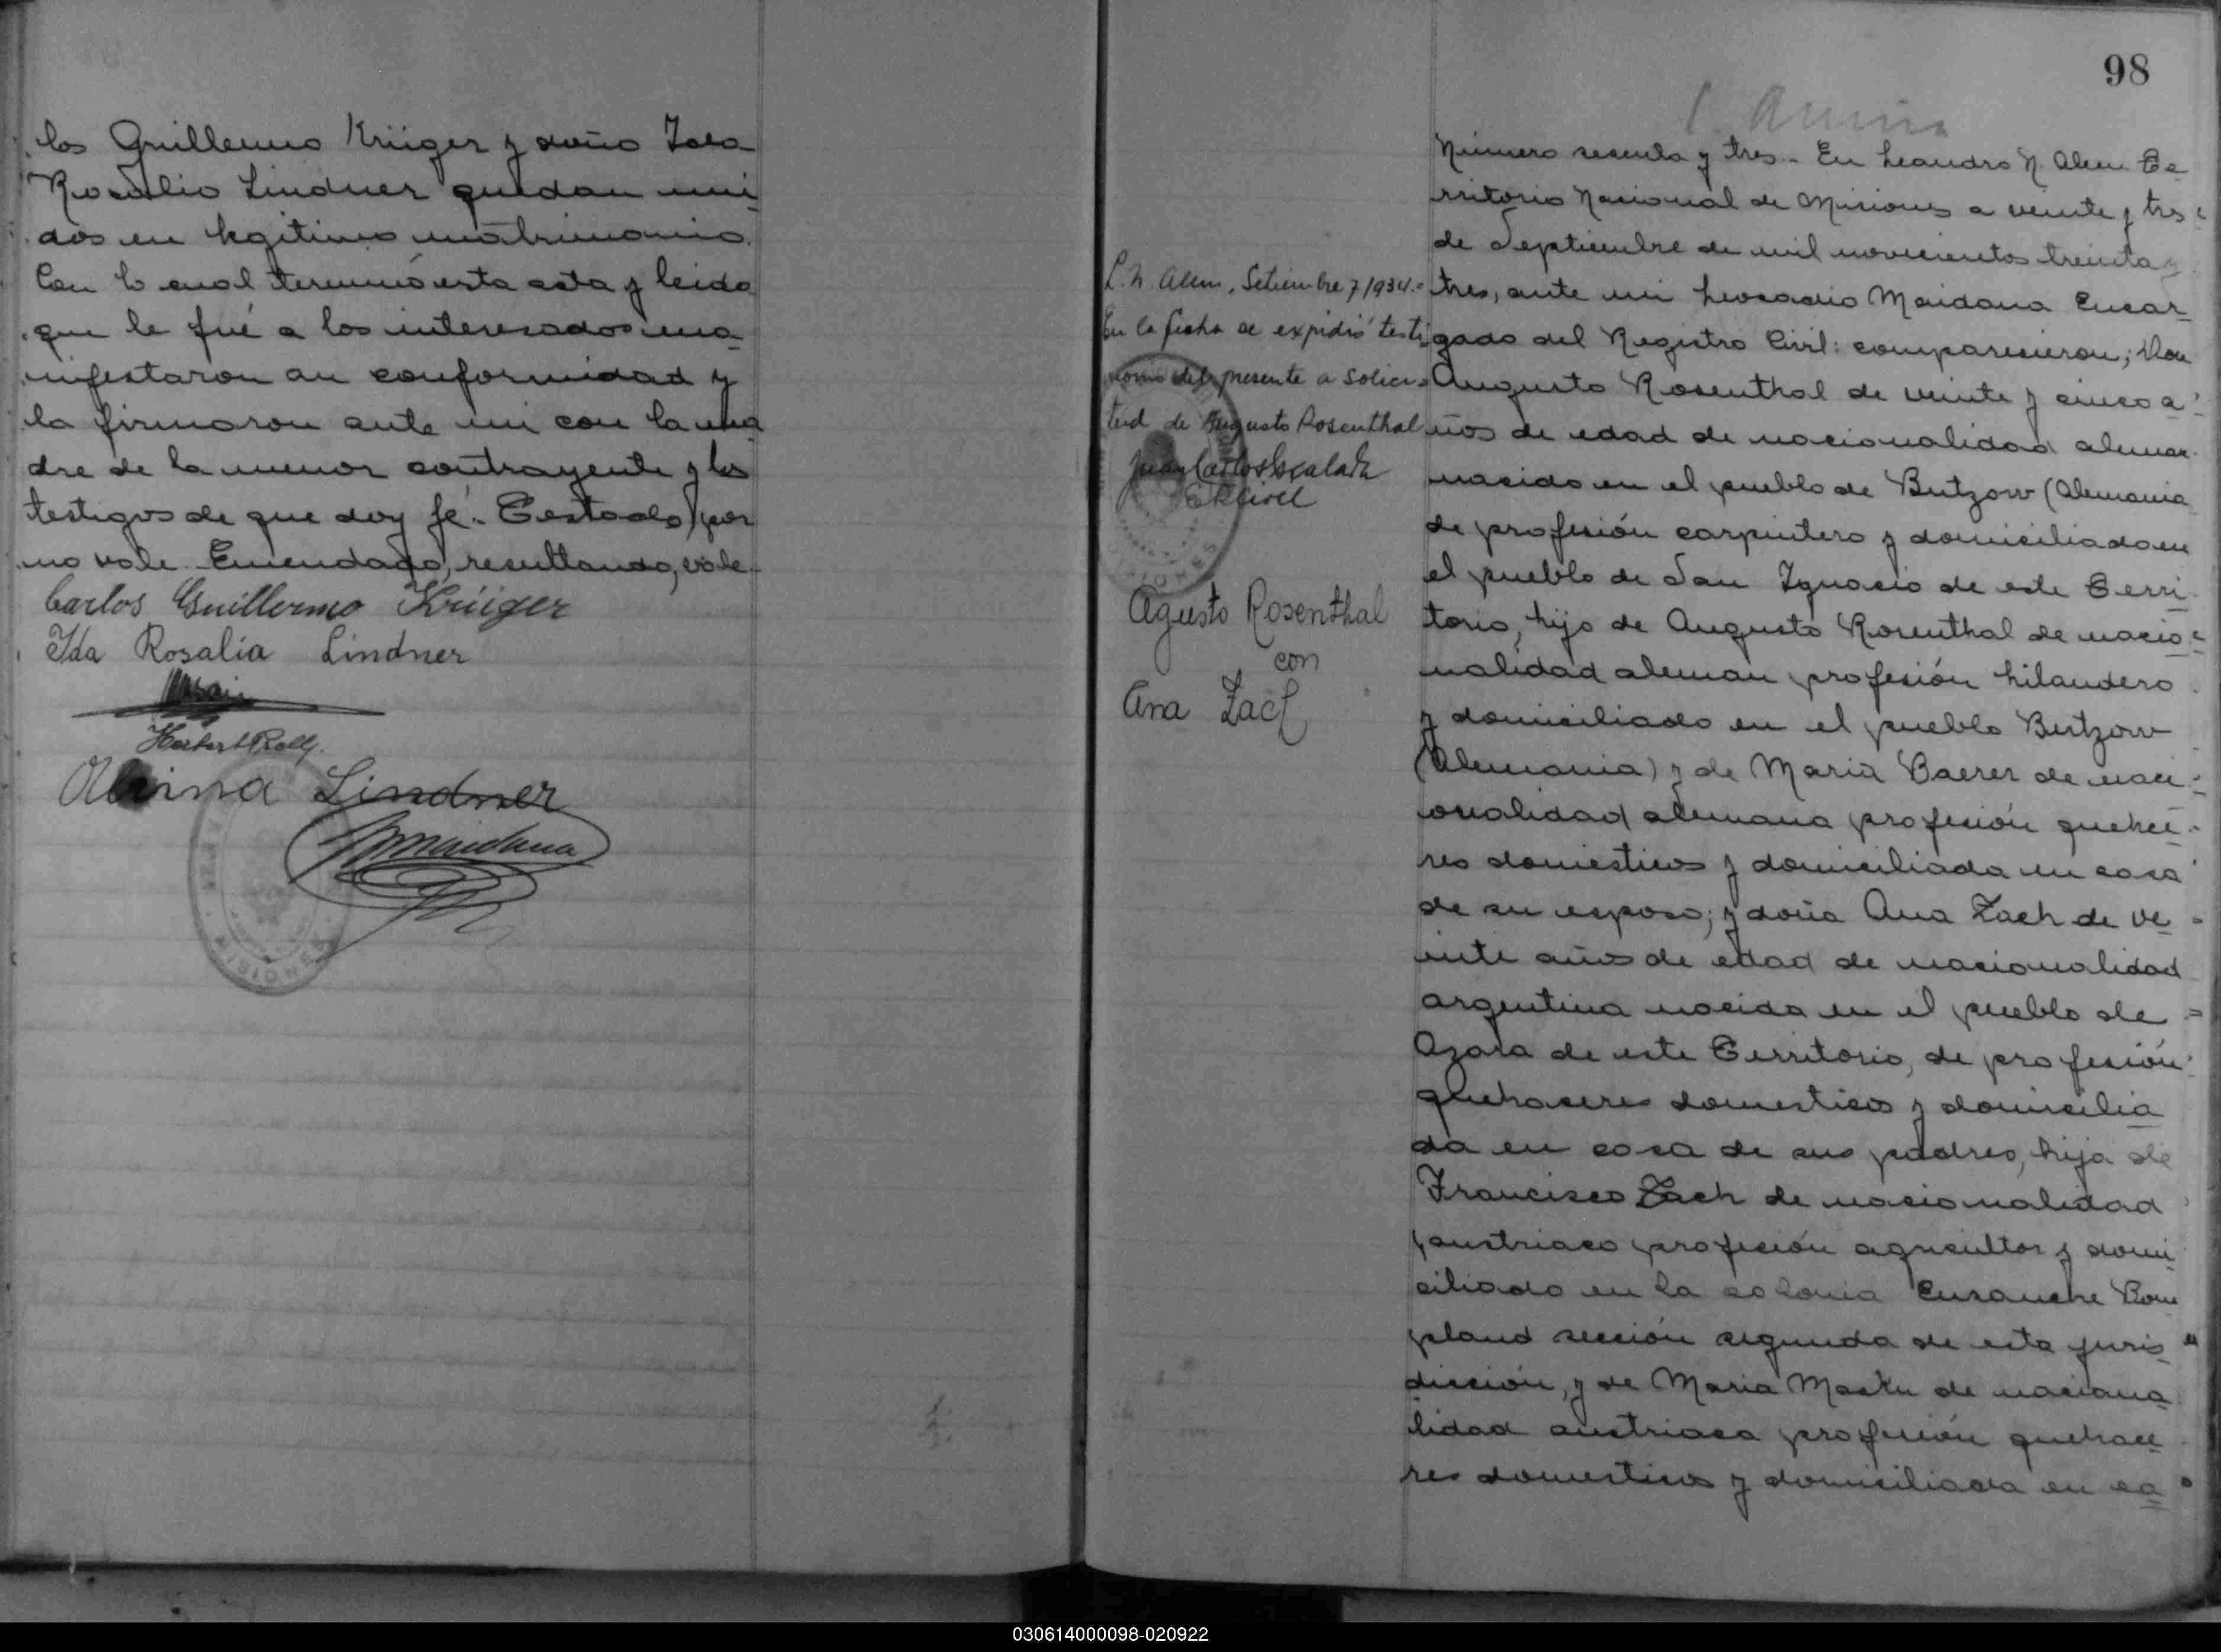 los Guillermo Krüiger y doña Ida
Rosalia Lindner quedan uni
dos en legitimo matrimonio.
Con lo cual terminó esta acta y leida
que le fué a los interesados ma
nifestaron su conformidad y
la firmaron ante mi con la ma
dre de la menor contrayente y los
testigos de que doy fé. Testado, por
no vale. Enmendado, resultando, vale.
Carlos Guillermo Krüiger
Ida Rosalia Lindner
Herbert
Lindner
Maidana
MISIONES
98
Número sesenta y tres.- En Leandro N. Alem Te
rritorio Nacional de Misiones a veinte y tres
de Septiembre de mil novecientos treinta y
tres, ante mi Leocadio Maidana Encar
gado del Registro Civil: comparecieron; Don
Augusto Rosenthal de veinte y cinco a
ños de edad de nacionalidad aleman
nacido en el pueblo de Butzow (Alemania
de profesión carpintero y domiciliado en
el pueblo de San Ignacio de este Terri
torio, hijo de Augusto Rosenthal de nacio
nalidad aleman profesión hilandero
y domiciliado en el pueblo Butzow
(Alemania) y de Maria Baerer de naci
onalidad alemana profesión quehace
res domésticos y domiciliada en casa
de su esposo; y doña Ana Zach de ve
inte años de edad de nacionalidad
argentina nacida en el pueblo de
Azara de este Territorio, de profesión
quehaceres domesticos y domicilia
da en casa de sus padres, hija de
Francisco Zach de nacionalidad
austriaco profesión agricultor y domi
ciliado en la colonia Ensanche Bom
pland sección segunda de esta juris
dicción, y de Maria Masku de naciona
lidad austriaca profesión quehace
res domesticos y domiciliada en ca
L. N. Alem, Setiembre 7/1934.=
En la fecha se expidió testi
monio del presente a solici=
tud de Augusto Rosenthal
Juan Carlos Escalada
MISIONES
Agusto Rosenthal
con
Ana Zach
030614000098-020922